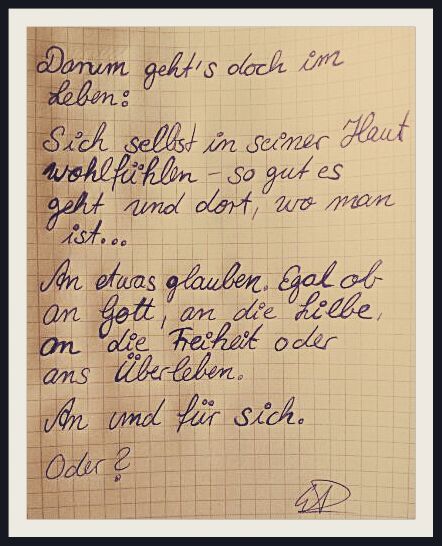 Darum geht's doch im
Leben:
Sich selbst in seiner Haut
wohlfühlen - so gut es
geht und dort, wo man
ist...
An etwas glauben. Egal ob
an Gott, an die Liebe,
an die Freiheit oder
ans Überleben.
An und für sich.
Oder?